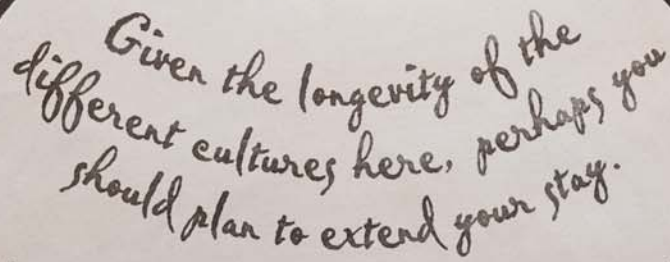 Given the longevity of the
different cultures here, perhaps you
should plan to extend your stay.